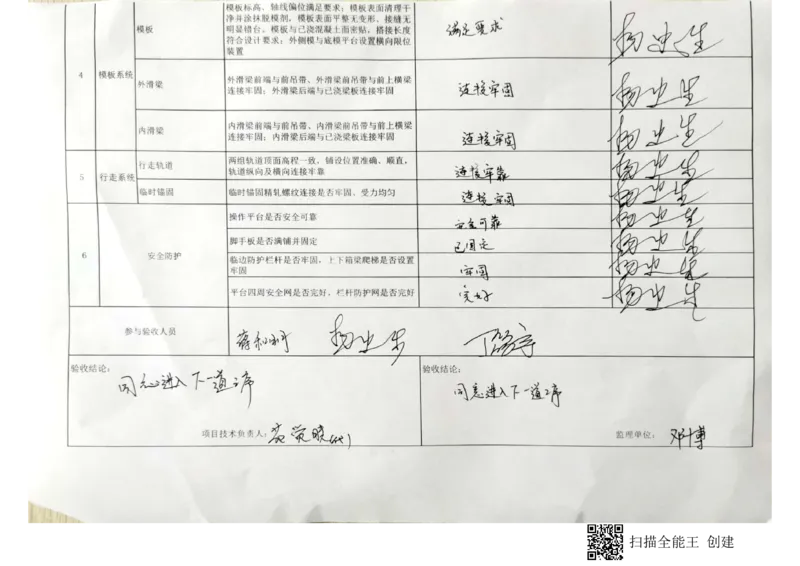 模板标高、轴线偏位满足要求；模板表面清理干
净并涂抹脱模剂，模板表面平整无变形，接缝无
明显错台。模板与已浇混凝土面密贴，搭接长度
符合设计要求；外侧模与底模平台设置横向限位
装置
模板
满足要求
4
模板系统
外滑梁
外滑梁前端与前吊带、外滑梁前吊带与前上横梁
连接牢固；外滑梁后端与已浇梁板连接牢固
连接牢固
内滑梁
内滑梁前端与前吊带、内滑梁前吊带与前上横梁
连接牢固；内滑梁后端与已浇梁板连接牢固
连接牢固
5
行走系统
行走轨道
两组轨道顶面高程一致，铺设位置准确、顺直，
轨道纵向及横向连接牢靠
连接牢靠
临时锚固
临时锚固精轧螺纹连接是否牢固、受力均匀
连接牢固
6
安全防护
操作平台是否安全可靠
安全可靠
脚手板是否满铺并固定
已固定
临边防护栏杆是否牢固，上下箱梁爬梯是否设置
牢固
牢固
平台四周安全网是否完好，栏杆防护网是否完好
完好
参与验收人员
验收结论：
同意进入下一道工序
项目技术负责人：
验收结论：
同意进入下一道工序
监理单位：
邓博
扫描全能王 创建